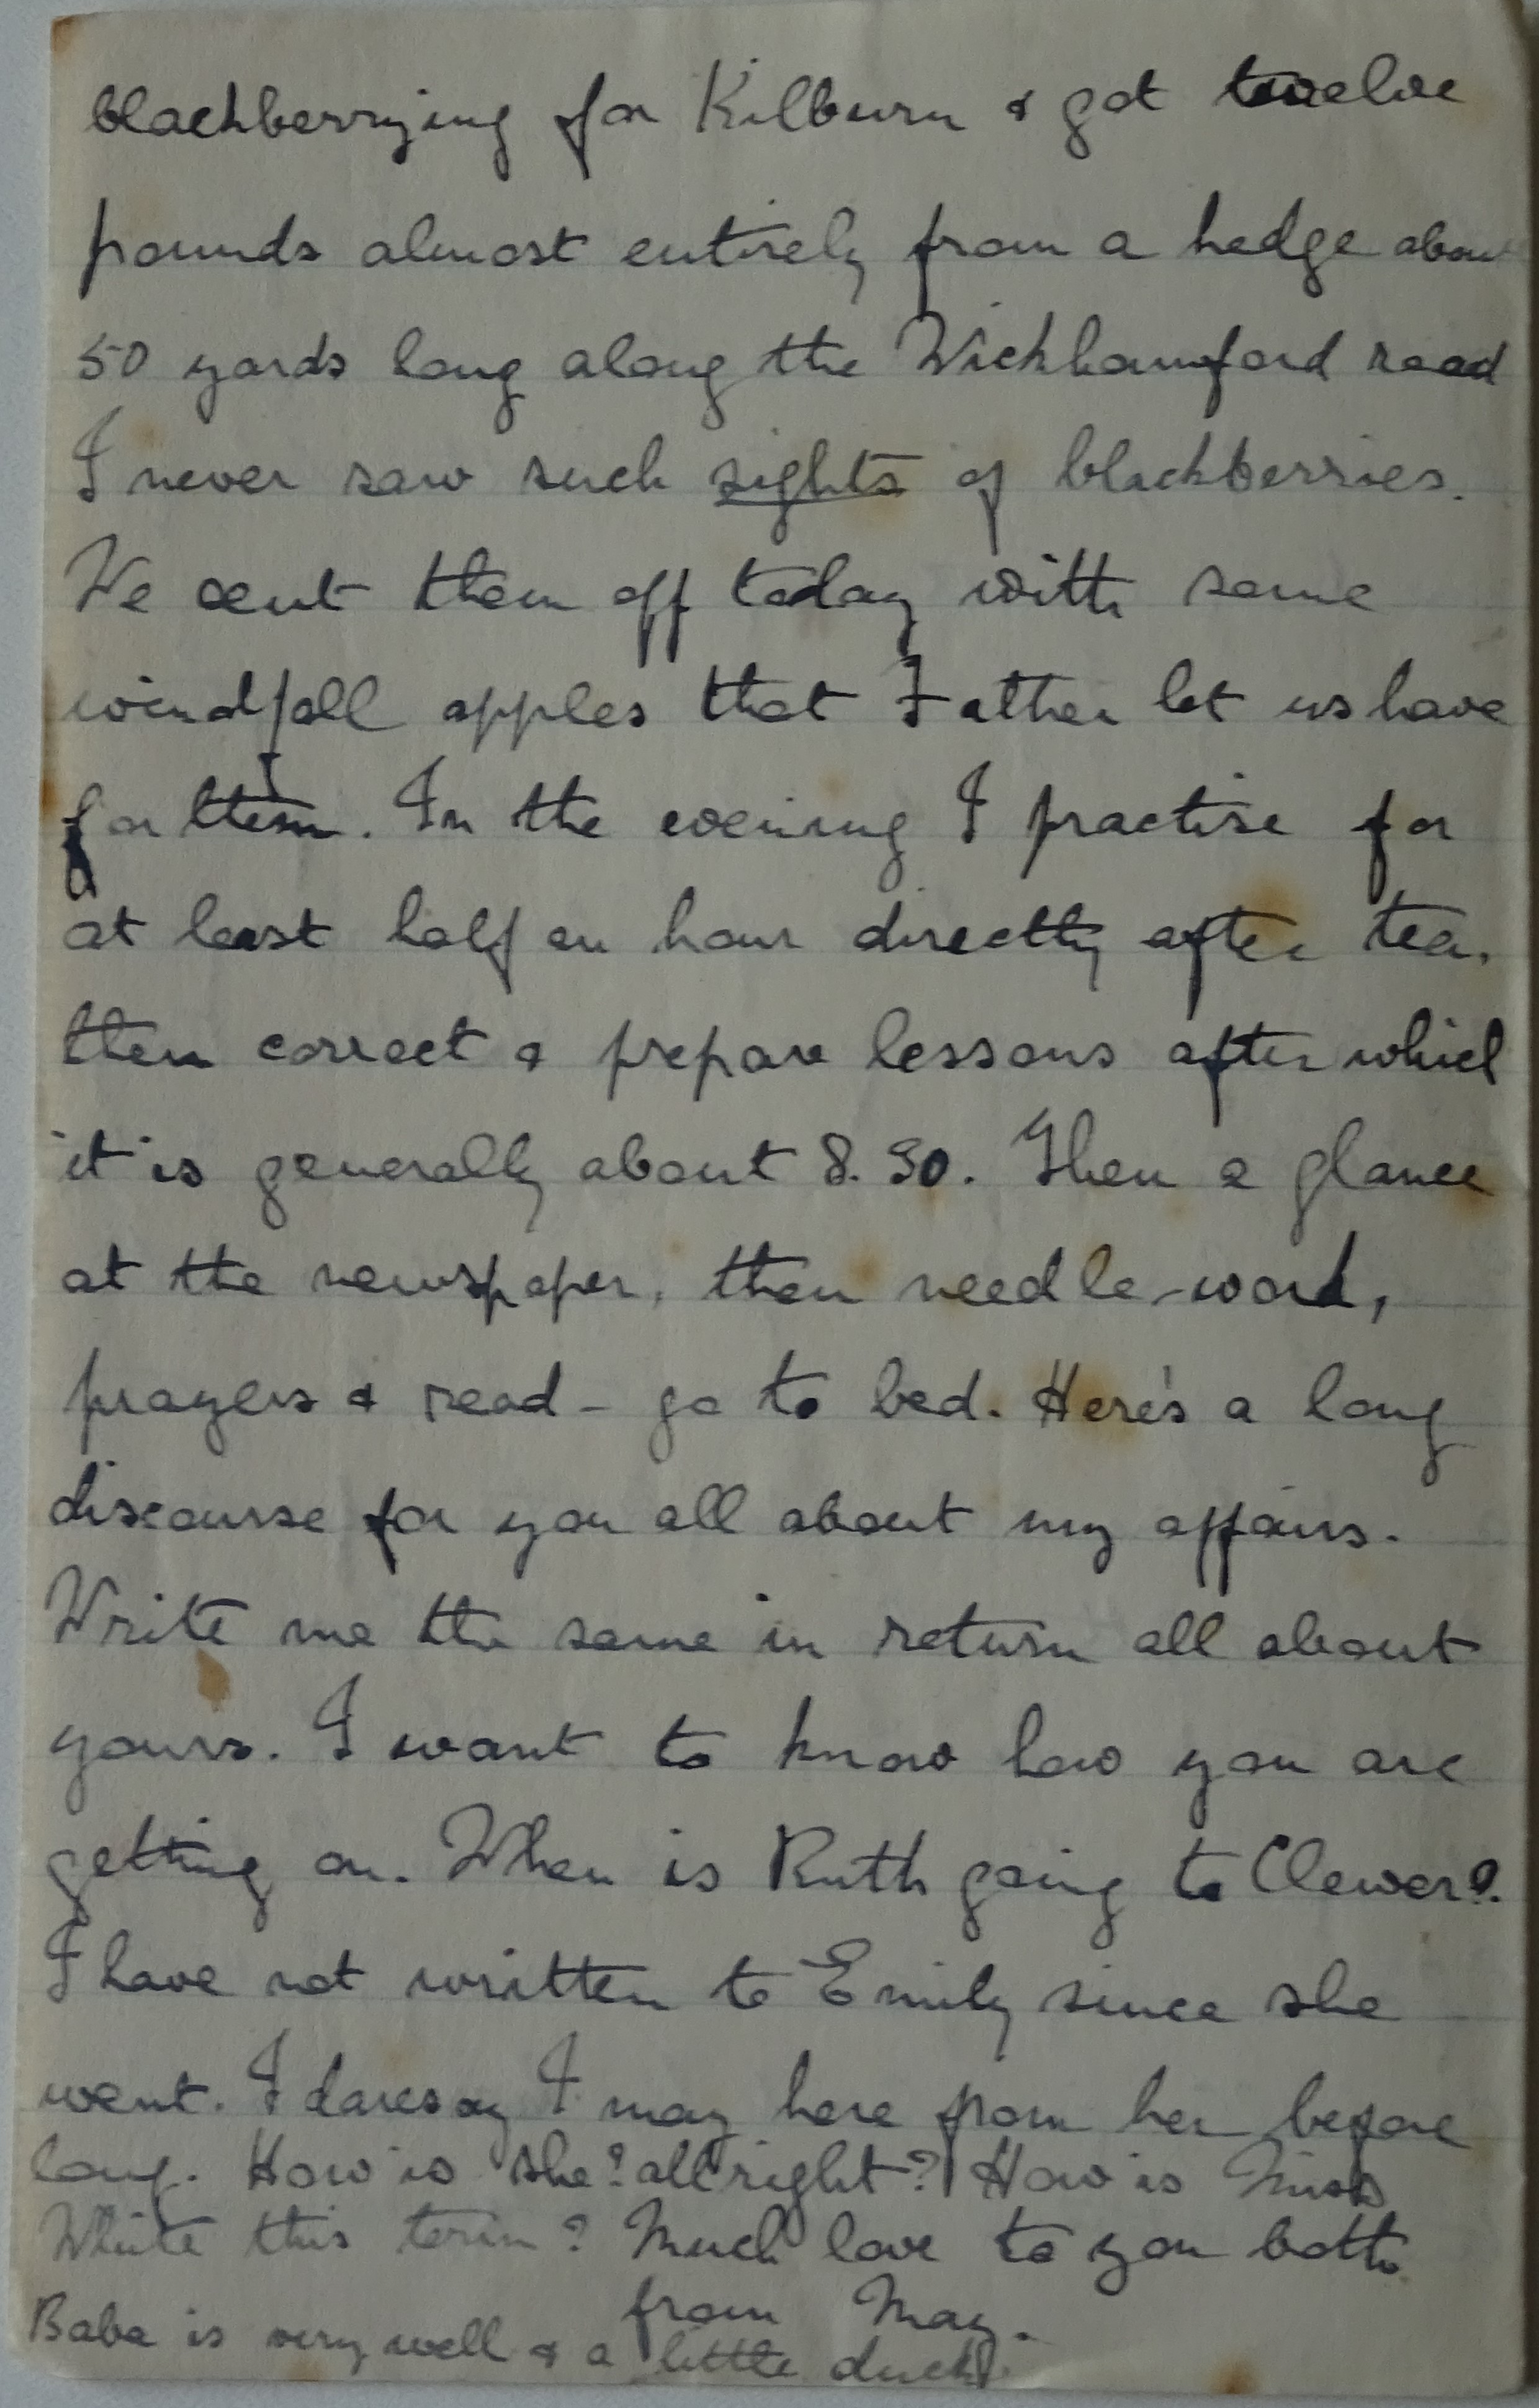 blackberrying for Kilburn & got twelve
pounds almost entirely from a hedge about
50 yards long along the Wickhamford road
I never saw such sights of blackberries.
We sent them off today with some
windfall apples that Father let us have
for them. In the evening I practise for
at least half an hour directly after tea,
then correct & prepare lessons after which
it is generally about 8.30. Then a glance
at the newspaper, then needle-work,
prayers & read - go to bed. Here's a long
discourse for you all about my affairs.
Write me the same in return all about
yours. I want to know how you are
getting on. When is Ruth going to Clewer?
I have not written to Emily since she
went. I daresay I may here from her before
long. How is she? all right? How is Miss
White this term? Much love to you both
from May.
Baba is very well & a little duck.